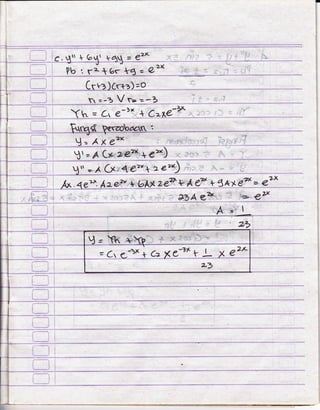 c. y'' + 6y' + 9y = e^2x
Pb : r² + 6r + 9 = e^2x
(r+3)(r+3)=0
r₁ = -3 V r₂ = -3
Yh = C₁ e^-3x + C₂xe^-3x
Fungsi percobaan :
y = Axe^2x
y' = A (x 2e^2x + e^2x)
y'' = A (x 4e^2x + 2e^2x)
Ax 4e^2x A2e^2x + 6Ax2e^2x + Ae^2x + 9Axe^2x = e^2x
23A e^2x = e^2x
A = 1/23
y = Yh + Yp
= C₁ e^-3x + C₂ xe^-3x + 1/23 x e^2x